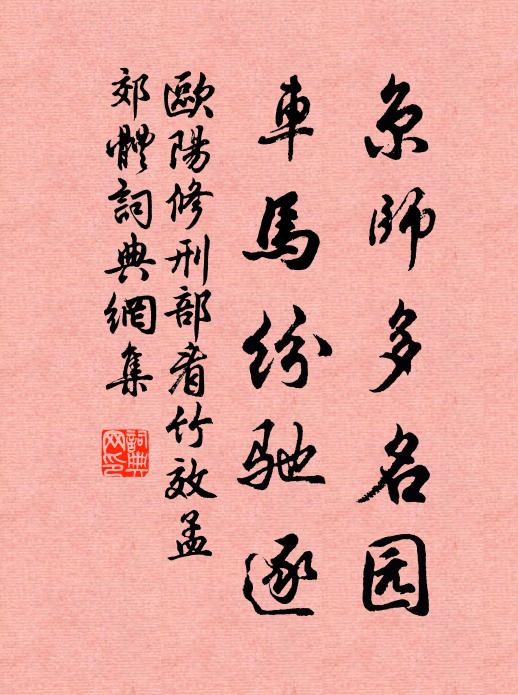 京師多名园
車馬紛馳逐
歐陽修刑部看竹效孟
郊體詞典網集
詞典網印